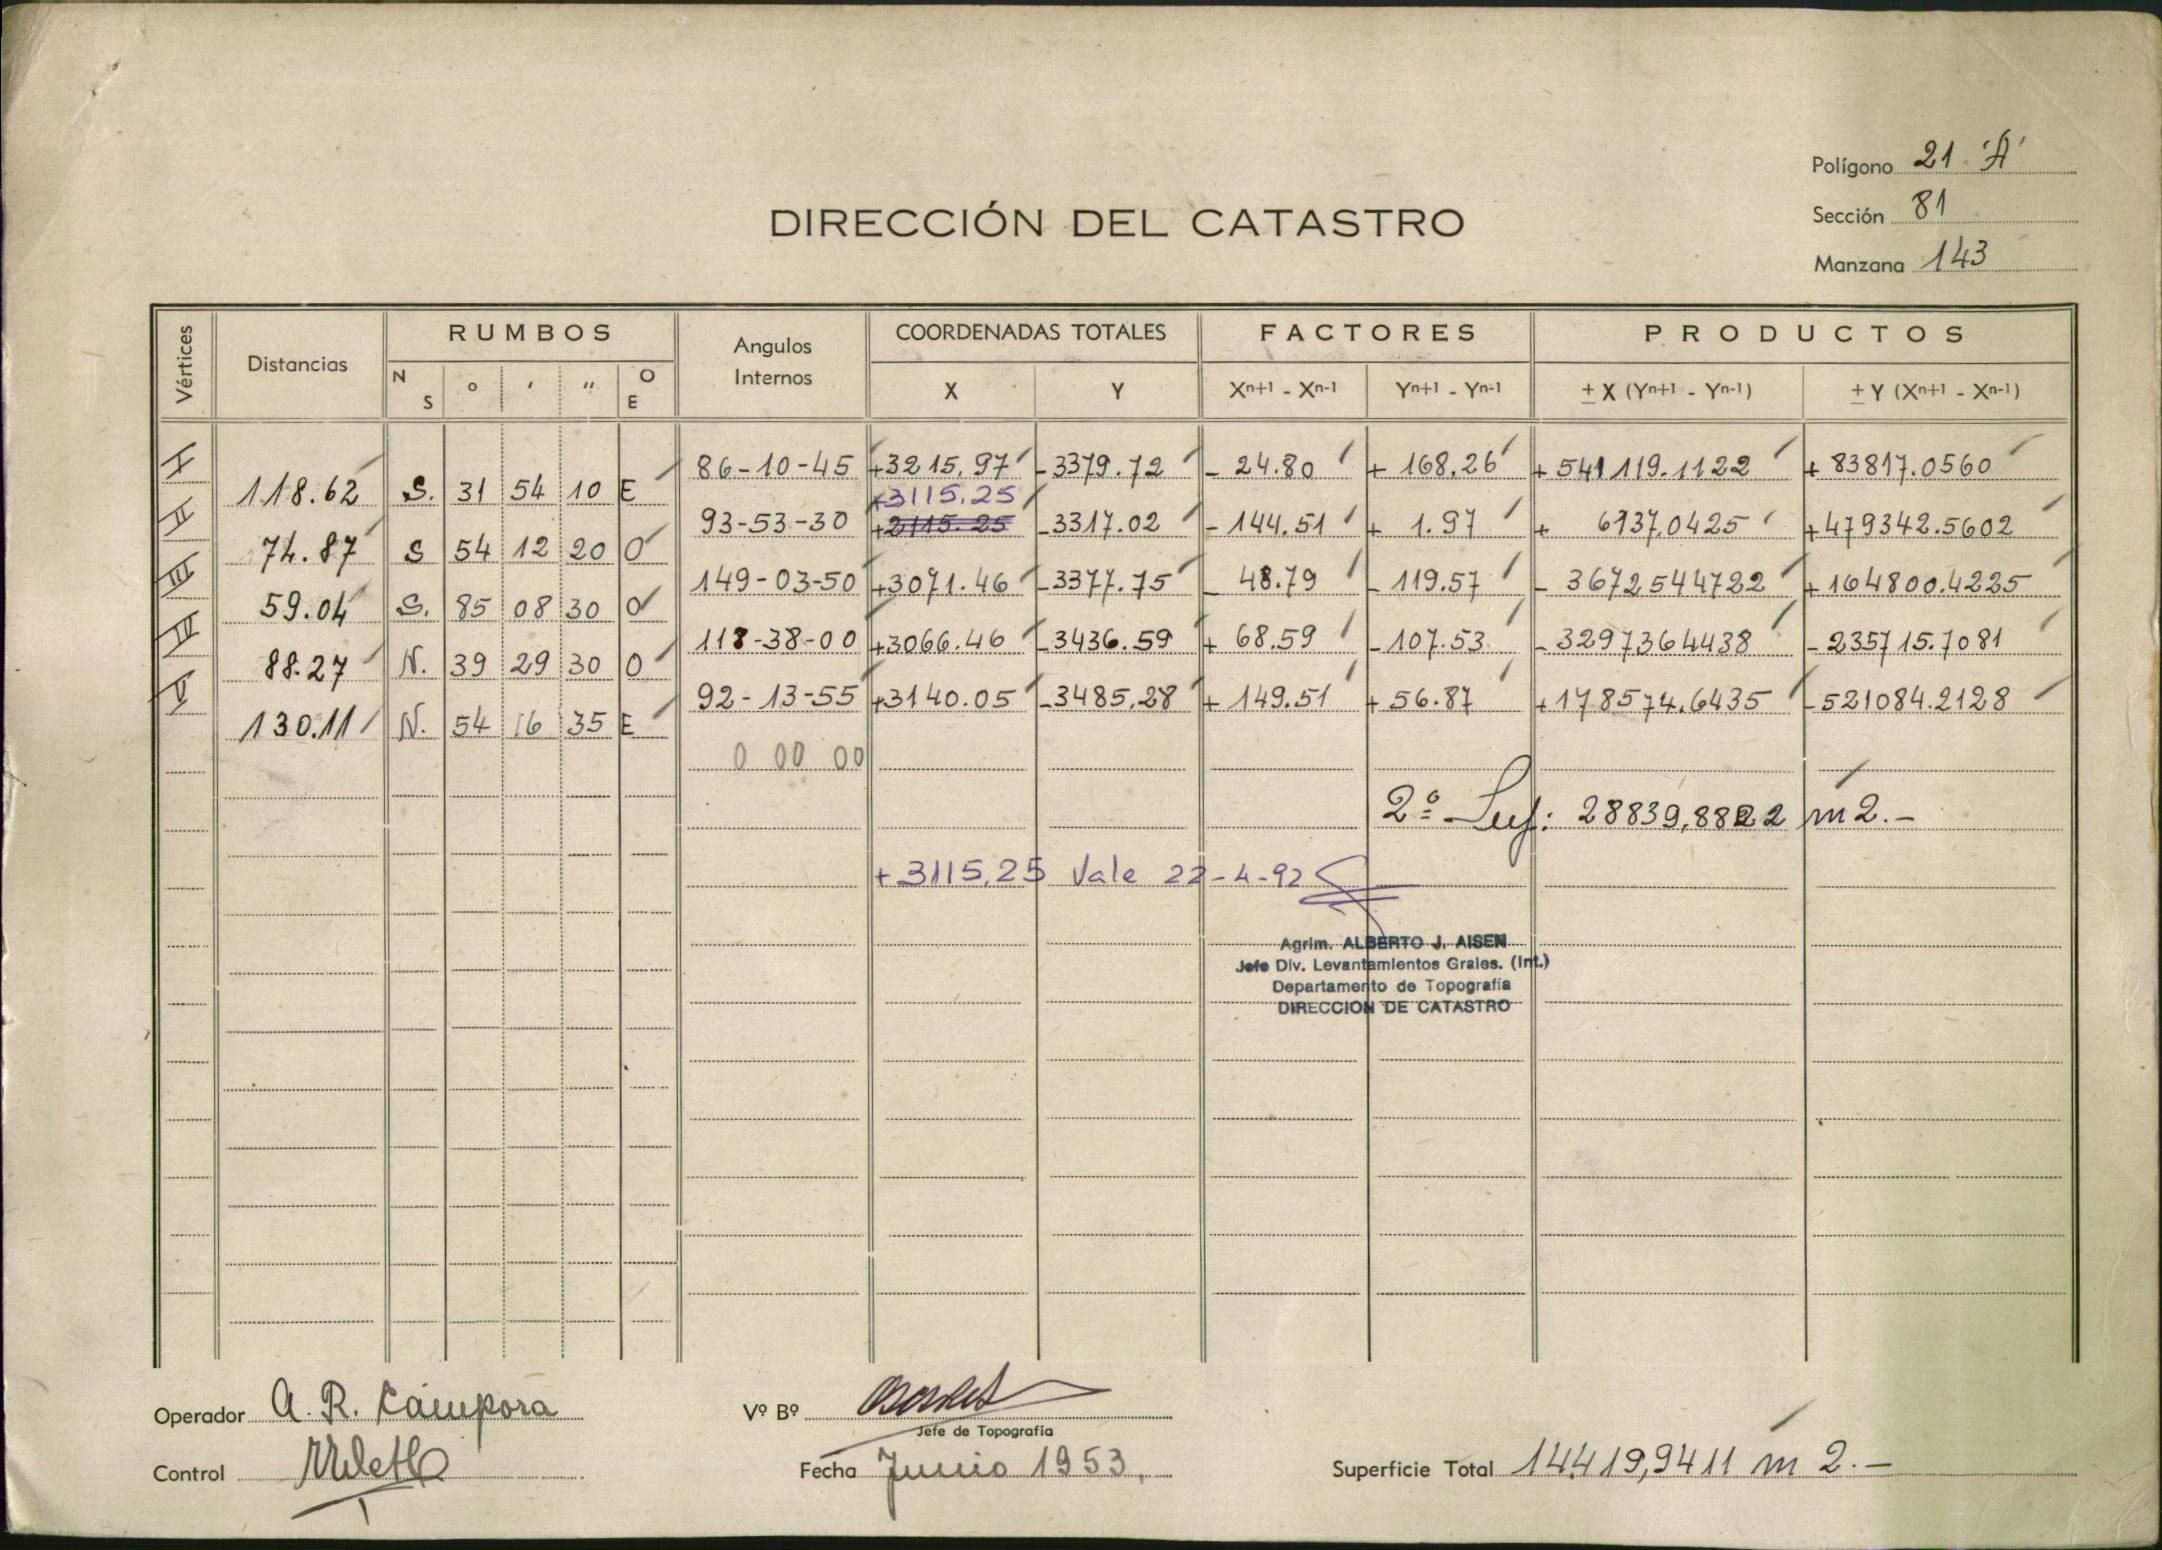 Polígono 21 'A'
DIRECCIÓN DEL CATASTRO
Sección 81
Manzana 143
Vértices Distancias RUMBOS Angulos Internos COORDENADAS TOTALES FACTORES PRODUCTOS
N S ° ' " O E X Y Xn+1 - Xn-1 Yn+1 - Yn-1 ± X (Yn+1 - Yn-1) ± Y (Xn+1 - Xn-1)
I 86-10-45 +3215.97 -3379.72 - 24.80 + 168.26 +541119.1122 + 83817.0560
118.62 S. 31 54 10 E
+3115.25
II 93-53-30 +2115.25 -3317.02 - 144.51 + 1.97 + 6137.0425 +479342.5602
74.87 S 54 12 20 O
III 149-03-50 +3071.46 -3377.75 - 48.79 - 119.57 - 3672544722 +164800.4225
59.04 S. 85 08 30 O
IV 118-38-00 +3066.46 -3436.59 + 68.59 -107.53 -3297364438 -235715.7081
88.27 N. 39 29 30 O
V 92-13-55 +3140.05 -3485.28 + 149.51 +56.87 +178574.6435 -521084.2128
130.11 N. 54 16 35 E
0 00 00
2º Sup: 28839,8822 m2.-
+3115,25 Vale 22-4-92
Agrim. ALBERTO J. AISEN
Jefe Div. Levantamientos Grales. (Int.)
Departamento de Topografía
DIRECCION DE CATASTRO
Operador A. R. Cámpora Vº Bº
Jefe de Topografía
Control Fecha Junio 1953. Superficie Total 14419,9411 m2.-